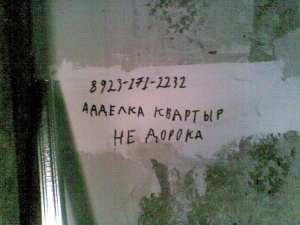 8923-171-2232
АААЕЛКА КВАРТЫР
НЕ ДОРОКА